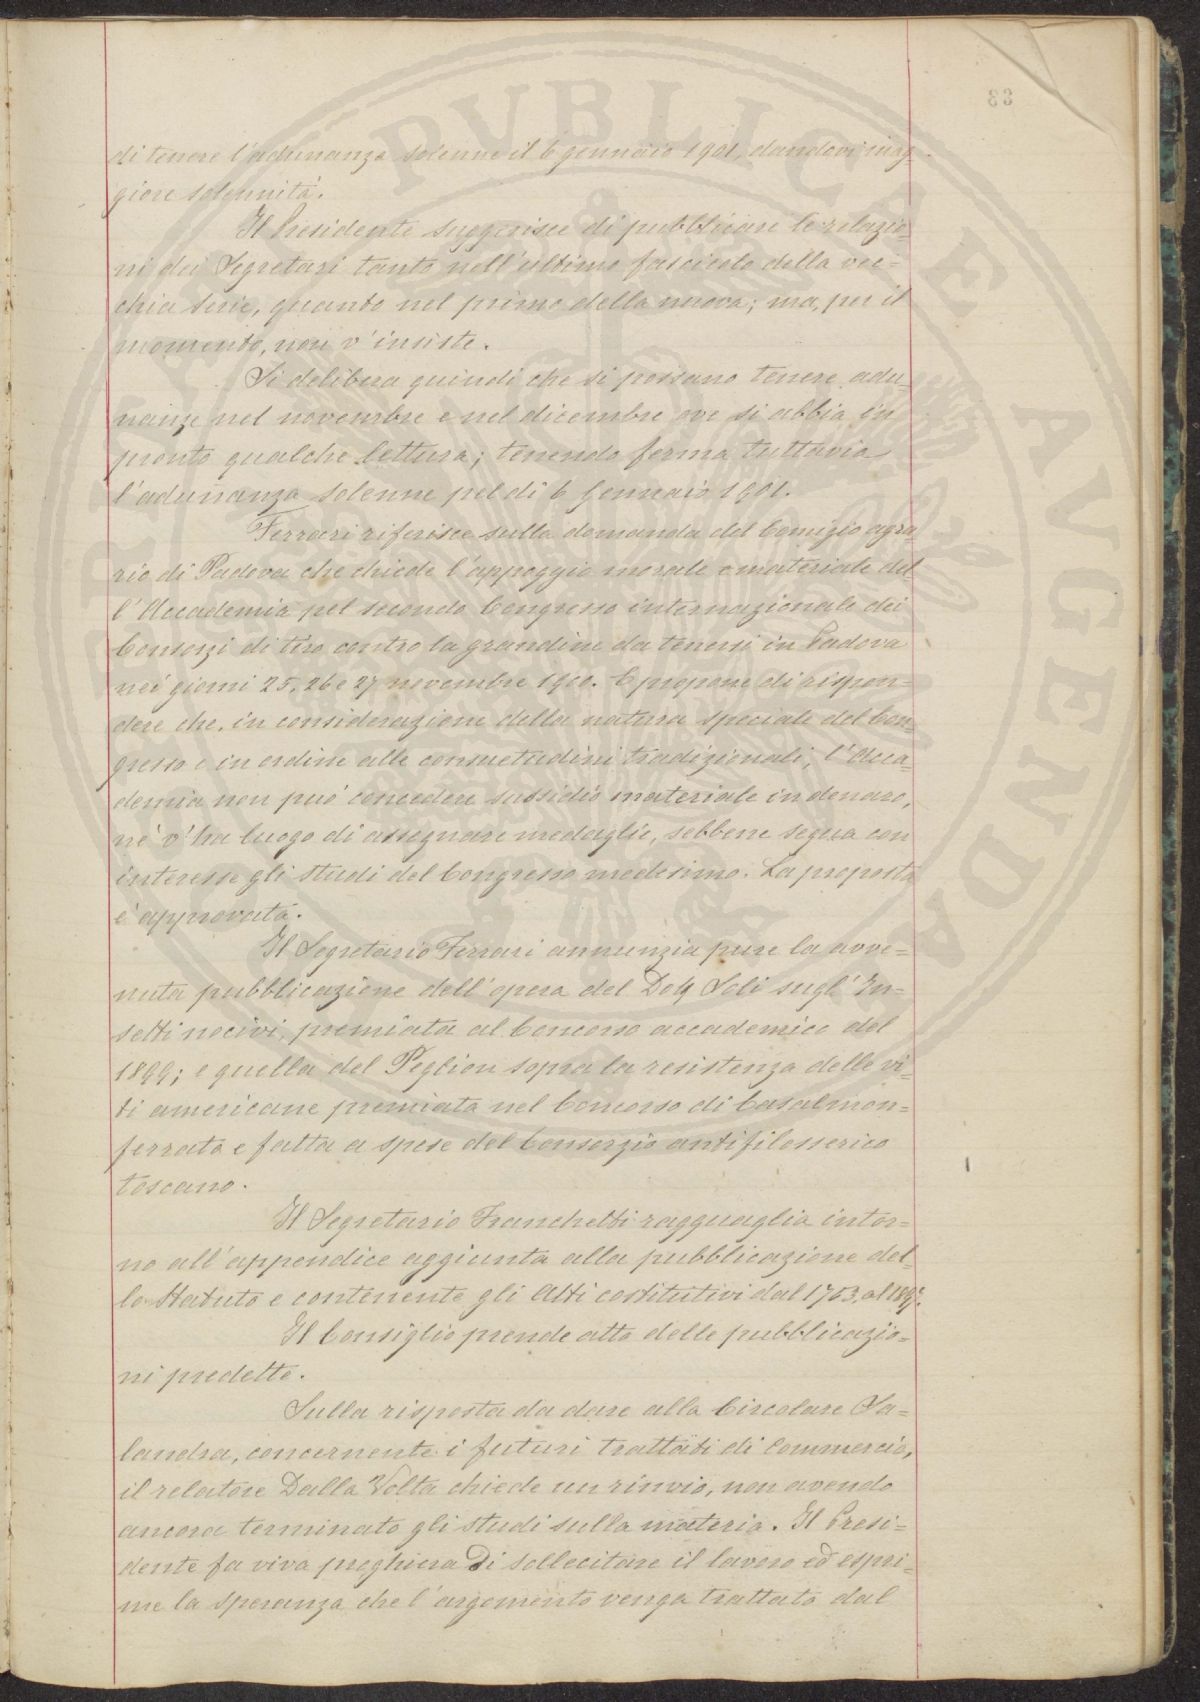 33
di tenere l'adunanza solenne il 6 gennaio 1901, dandovi mag-
giore solennità.
Il Presidente suggerisce di pubblicare le relazio-
ni dei Segretari tanto nell'ultimo fascicolo della vec=
chia serie, quanto nel primo della nuova; ma, per il
momento, non v'insiste.
Si delibera quindi che si possano tenere adu-
nanze nel novembre e nel dicembre ove si abbia in
pronto qualche lettura; tenendo ferma tuttavia
l'adunanza solenne pel dì 6 Gennaio 1901.
Ferrari riferisce sulla domanda del Comizio agra
rio di Padova che chiede l'appoggio morale e materiale del
l'Accademia pel secondo Congresso internazionale dei
Consorzi di tiro contro la grandine da tenersi in Padova
nei giorni 25, 26 e 27 novembre 1900. E propone di rispon=
dere che, in considerazione della natura speciale del Con-
gresso e in ordine alle consuetudini tradizionali, l'Acca=
demia non può concedere sussidio materiale in denaro,
nè v'ha luogo di assegnare medaglie, sebbene segua con
interesse gli studi del Congresso medesimo. La proposta
è approvata.
Il Segretario Ferrari annunzia pure la avve=
nuta pubblicazione dell'opera del Dott Soli sugl'In-
setti nocivi, premiata al Concorso accademico del
1899; e quella del Peglion sopra la resistenza delle vi-
ti americane premiata nel Concorso di Casalmon=
ferrato e fatta a spese del Consorzio antifilosserico
toscano.
Il Segretario Franchetti ragguaglia intor=
no all'appendice aggiunta alla pubblicazione del-
lo Statuto e contenente gli Atti costitutivi dal 1753 al
Il Consiglio prende atto delle pubblicazio=
ni predette.
Sulla risposta da dare alla Circolare Sa=
landra, concernente i futuri trattati di Commercio,
il relatore Dalla Volta chiede un rinvio, non avendo
ancora terminato gli studi sulla materia. Il Presi=
dente fa viva preghiera di sollecitare il lavoro ed espri-
me la speranza che l'argomento venga trattato dal
PVBLICAE AVGENDA